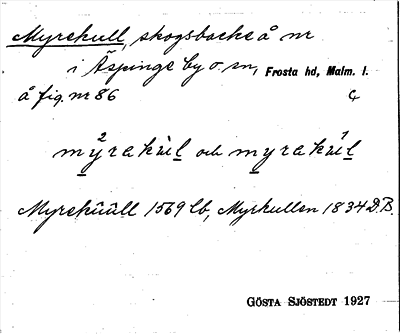 Myrekull, skogsbacke å nr
i Äspinge by o. sn, Frosta hd, Malm. l.
å fig. nr 86 C
mỳ²rakùl och myrakú¹l
Myrekuull 1569 lb, Myrkullen 1834 D.B.
GÖSTA SJÖSTEDT 1927